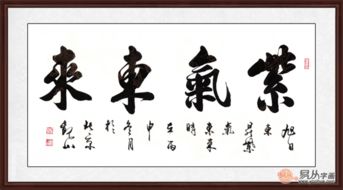 紫氣東來
旭日
東
昇紫
氣
東來
時
在丙
申
冬月
於
北京
易从字画